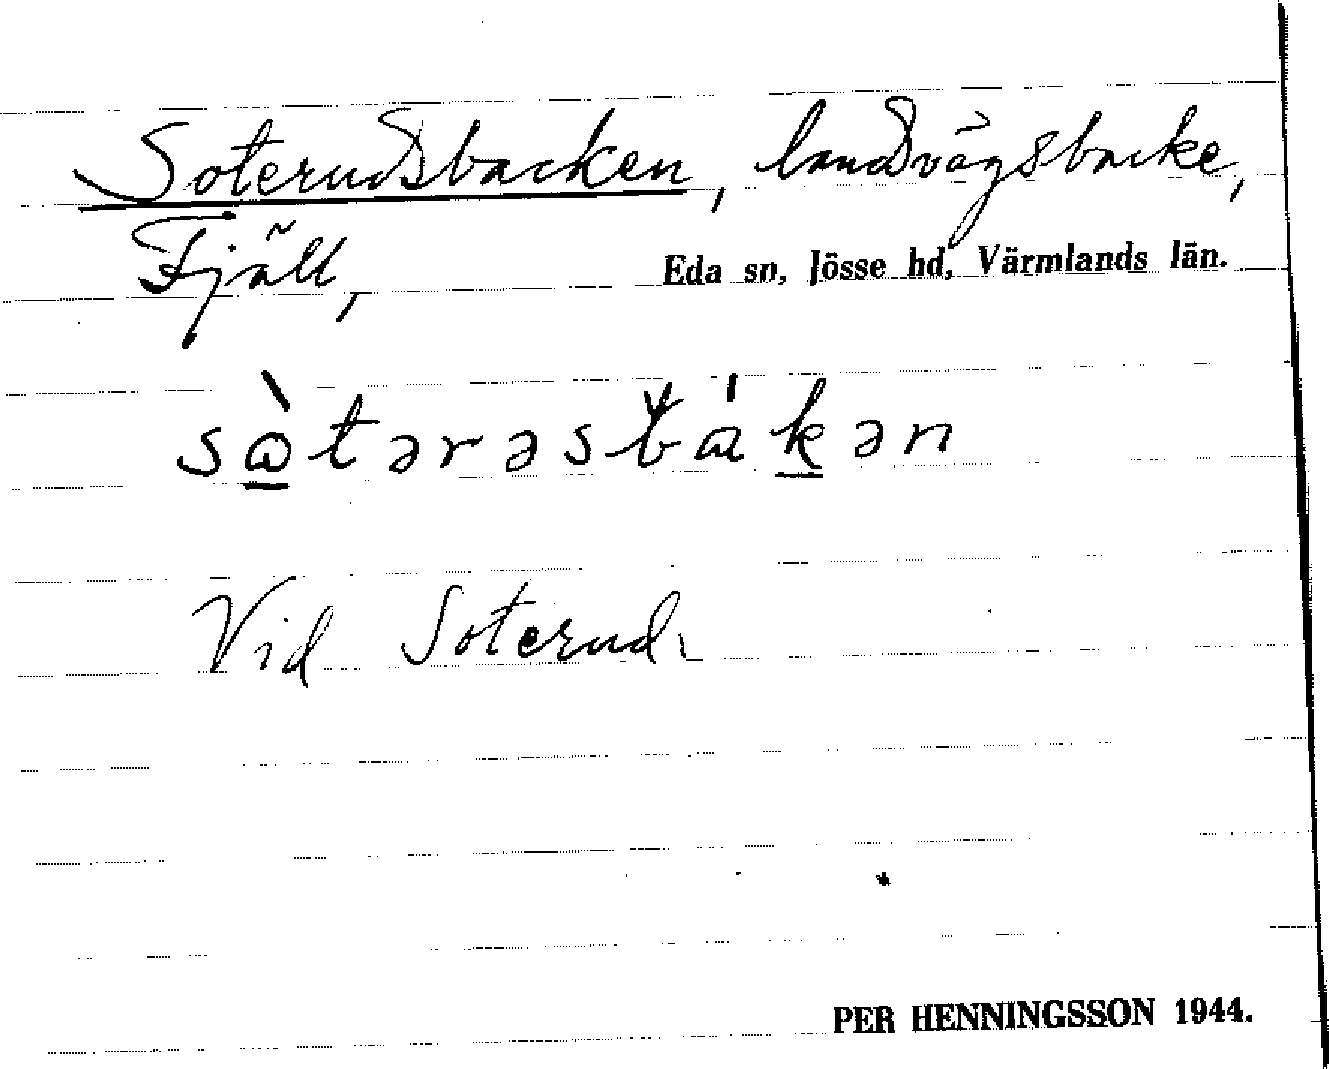 Soterudsbacken, landsvägsbacke,
Fjäll,
Eda sn, Jösse hd, Värmlands län.
sò̱tərəsbák̲ən
Vid Soterud.
PER HENNINGSSON 1944.